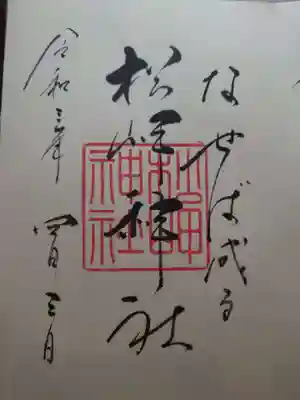 なせば成る
松岬神社
令和三年 四月三日
松岬
神社